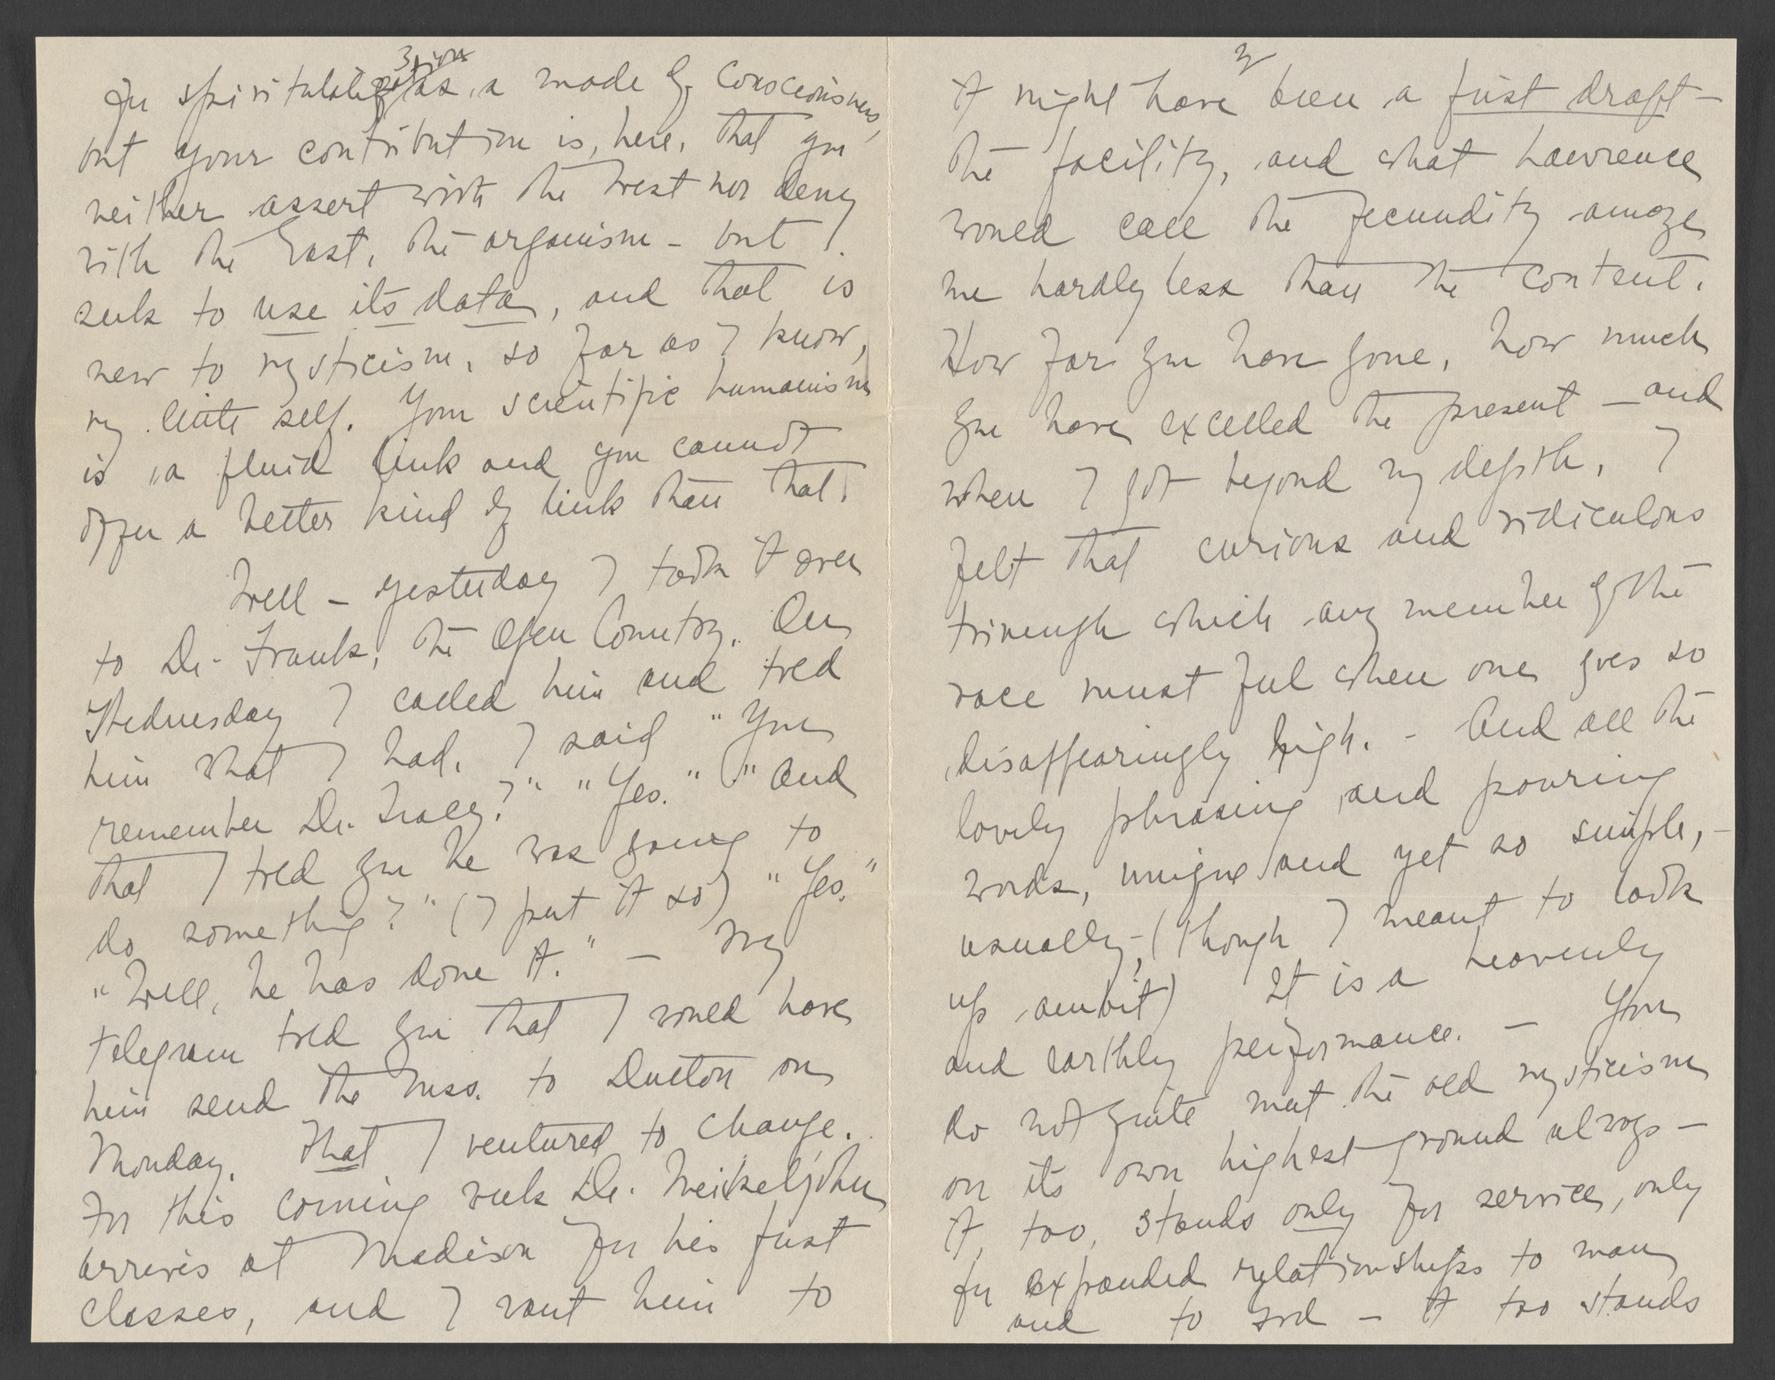 3
for spiritualization as a mode of consciousness,
but your contribution is, here, that you
neither assert with the West nor deny
with the East, the organism – but
seek to use its data, and that is
new to mysticism, so far as I know,
my little self. Your scientific humanism
is a fluid link and you cannot
offer a better kind of link than that.
Well – yesterday I took it over
to Dr. Frank, the Open Country. On
Wednesday I called him and told
him what I had. I said "You
remember Dr. ?" "Yes." "And
that I told you he was going to
do something?" (I put it so) "Yes."
"Well, he has done it." – My
telegram told you that I would have
him send the mss. to Dutton on
Monday. That I ventured to change.
For this coming week Dr. Meikeljohn
arrives at Madison for his first
classes, and I want him to
2
it might have been a first draft –
the facility, and what Lawrence
would call the fecundity amaze
me hardly less than the content.
How far you have gone, how much
you have excelled the present – and
when I got beyond my depth, I
felt that curious and ridiculous
triumph which any member of the
race must feel when one goes so
disappearingly high. – And all the
lovely phrasing and pouring
words, unique and yet so simple, –
usually, – (though I meant to look
up ambit) It is a heavenly
and earthly performance. – You
do not quite meet the old mysticism
on its own highest ground always –
it, too, stands only for service, only
for expanded relationships to man
and to God – it too stands